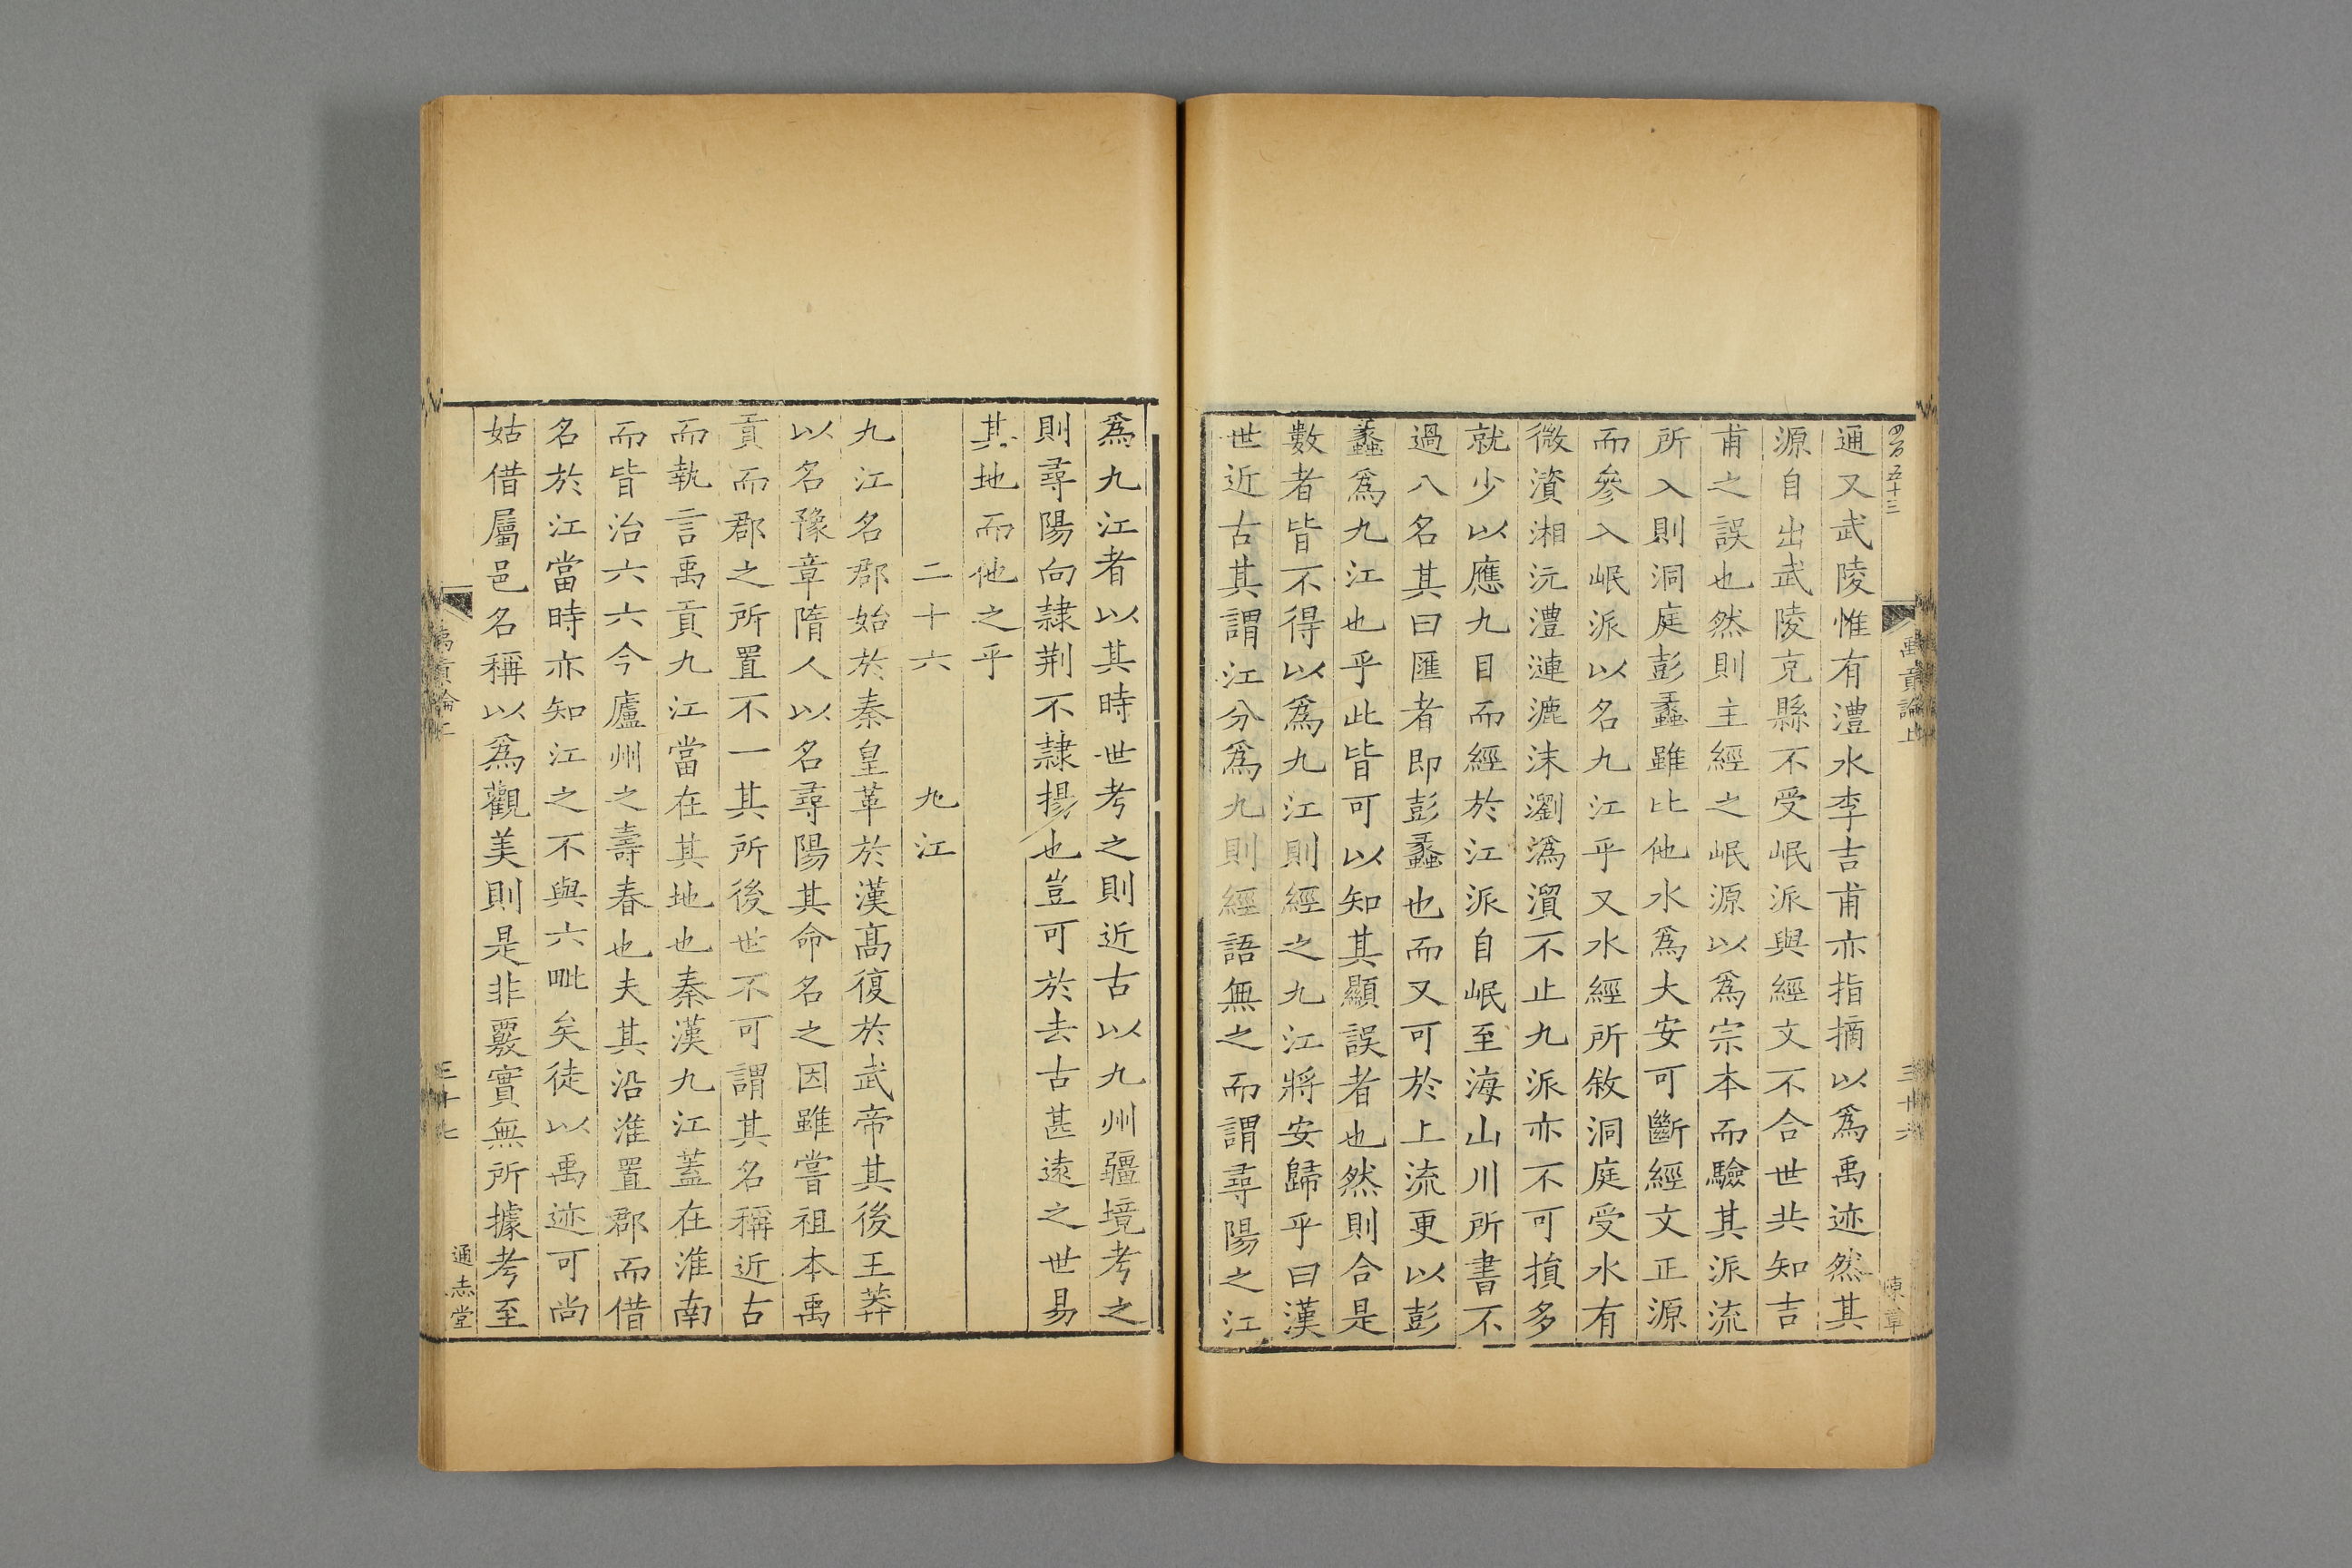 四百五十三
禹貢論上
三十六
陳章
通又武陵惟有澧水李吉甫亦指摘以爲禹迹然其
源自出武陵充縣不受岷派與經文不合世共知吉
甫之誤也然則主經之岷源以爲宗本而驗其派流
所入則洞庭彭蠡雖比他水爲大安可斷經文正源
而參入岷派以名九江乎又水經所敘洞庭受水有
微濱湘沅澧漣漉沫瀏潙溳不止九派亦不可損多
就少以應九目而經於江派自岷至海山川所書不
過八名其曰匯者即彭蠡也而又可於上流更以彭
蠡爲九江也乎此皆可以知其顯誤者也然則合是
數者皆不得以爲九江則經之九江將安歸乎曰漢
世近古其謂江分爲九則經語無之而謂尋陽之江
爲九江者以其時世考之則近古以九州疆境考之
則尋陽向隷荆不隷揚也豈可於去古甚遠之世易
其地而他之乎
二十六 九江
九江名郡始於秦皇革於漢髙復於武帝其後王莽
以名豫章隋人以名尋陽其命名之因雖嘗祖本禹
貢而郡之所置不一其所後世不可謂其名稱近古
而執言禹貢九江當在其地也秦漢九江蓋在淮南
而皆治六六今廬州之壽春也夫其沿淮置郡而借
名於江當時亦知江之不與六毗矣徒以禹迹可尚
姑借屬邑名稱以爲觀美則是非覈實無所據考至
禹貢論上
三十七
通志堂